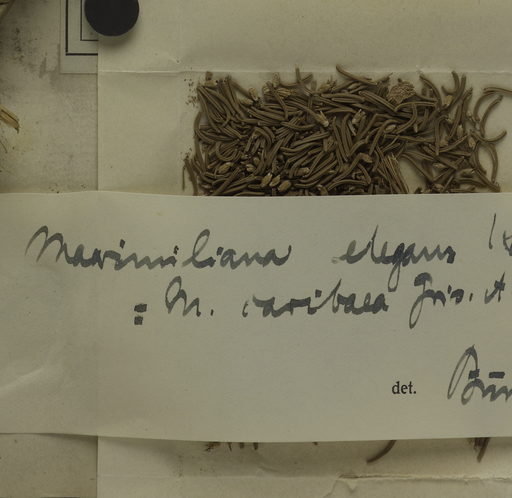 Maximiliana elegans
= M. caribaea Gris. et
det.